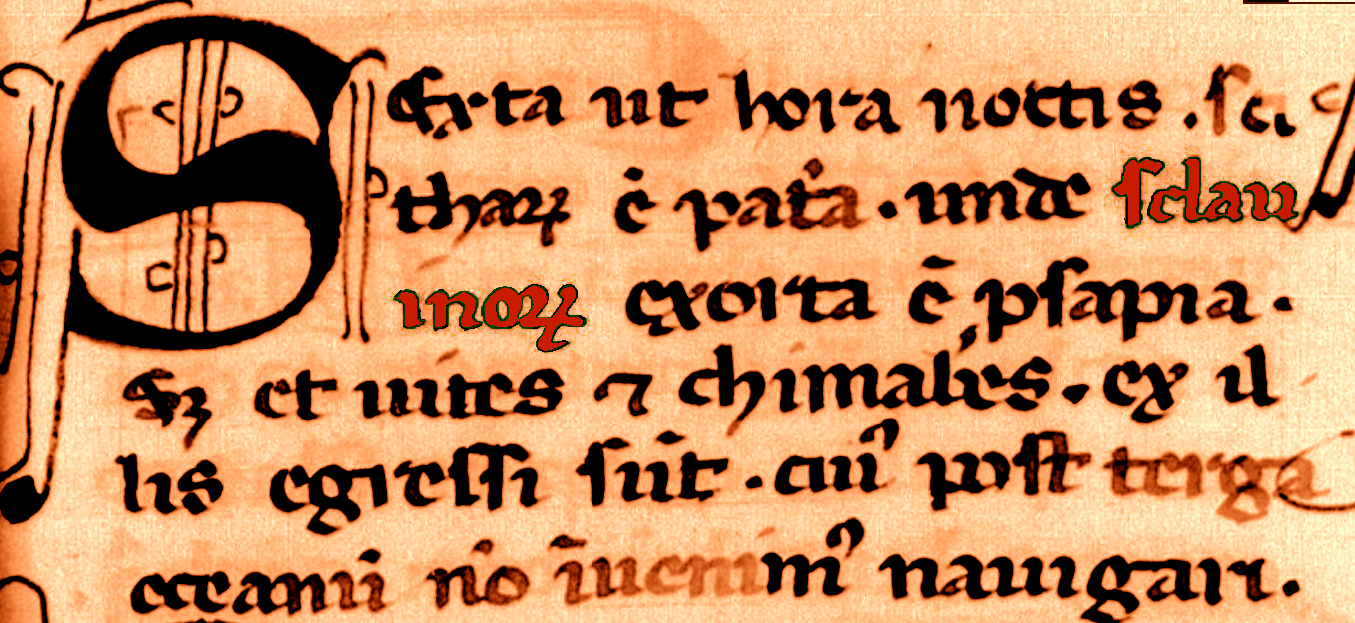 SExta ut hora noctis . sci
tharꝝ ē patͥa . unde sclau
inoꝝ exorta ē ꝓsapia .
Sꝫ et uites ⁊ chimales . ex il
lis egressi sūt . cuiꝰ post terga
occeanū nō īuenimꝰ nauigari .